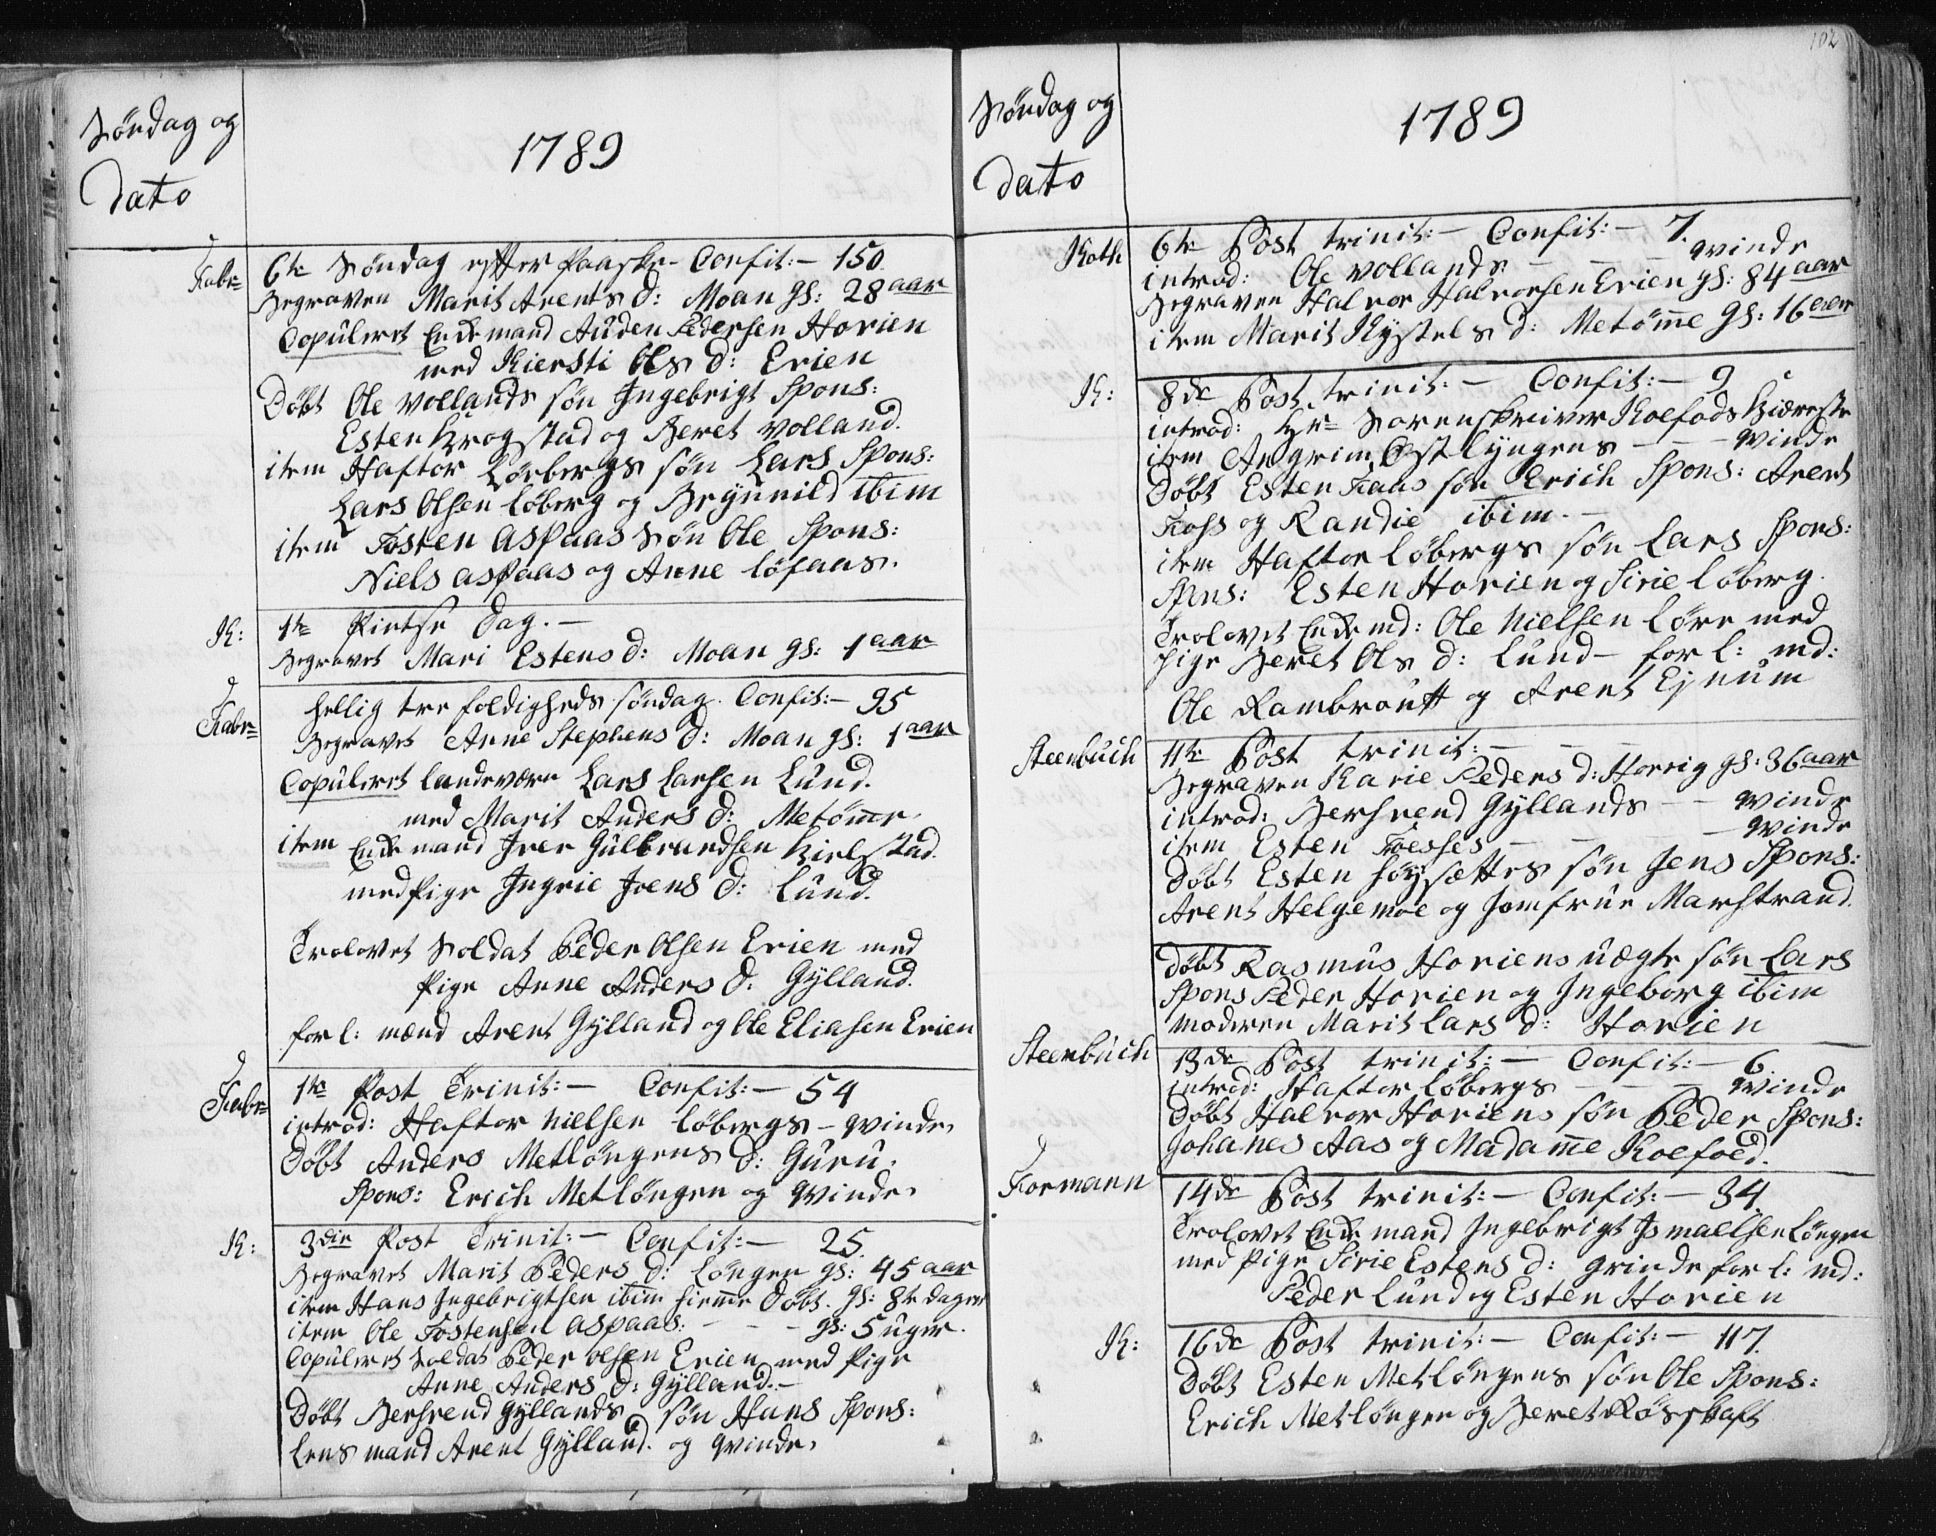 Søndag og
Dato
1789
Fabr=
6te Søndag efter Paaske - Confit: - 150
Begraven Marit Arents d: Moan gl: 28 aar
Copuleret Enkemand Auden Pedersen Horien
med Kiersti Ols d: Erien
Døbt Ole Vollands søn Ingebrigt Spons:
Esten Krogstad og Beret Volland.
item Haftor Løbergs søn Lars Spons:
Lars Olsen Løberg og Brynnild ibim
item Tosten Aspaas Søn Ole Spons:
Niels Aspaas og Anne Løfaas.
K:
1te Pintse Dag. -
Begravet Mari Estens d: Moan gl: 1 aar
Fabr=
Hellig tre foldigheds søndag. Confit: - 95
Begravet Anne Stephens d: Moan gl: 1 aar
Copuleret Landeværn Lars Larsen Lund.
med Marit Anders d: Metømme.
item Enkemand Iver Gulbrandsen Kielstad.
med Pige Ingrie Joens d: Lund.
Trolovet Soldat Peder Olsen Erien med
Pige Anne Anders d: Gylland.
forl: mænd Arent Gylland og Ole Eliasen Erien
Fabr=
1te Post Trinit: - Confit: - 54
introd: Haftor Nielsen Løbergs - Qvinde.
Døbt Anders Metløngens d: Guru.
Spons: Erich Metløngen og Qvinde.
K:
3die Post Trinit: - Confit: - 25.
Begravet Marit Peders d: Løngen gl: 45 aar
item Hans Ingebrigtsen ibim hiemme Døbt. gl: 8te dager
item Ole Tostensen Aspaas: - - - gl: 5 uger.
Copuleret Soldat Peder Olsen Erien med Pige
Anne Anders d: Gylland. -
Døbt Berhrend Gyllands søn Hans Spons:
Lensmand Arent Gylland. og Qvinde.
102
Søndag og
Dato
1789
Koth
6te Post trinit: - Confit: - 7.
introd: Ole Vollands - - - - Qvinde
Begraven Halvor Halvorsen Erien gl: 84 aar
item Marit Kystels d: Metømme gl: 16 aar
K:
8de Post trinit: - Confit: - 9
introd: Hr= Sorenskriver Koefods Kiæreste
item Angrim Østlyngens - - - Qvinde
Døbt Esten Kaas søn Erich Spons: Arent
Foss og Randie ibim. -
item Haftor Løbergs søn Lars Spons:
Spons: Esten Horien og Sirie Løberg.
Trolovet Enkemd: Ole Nielsen Løre med
Pige Beret Ols d: Lund - forl: md:
Ole Rambraut og Arent Ejnum
Steenbuch
11te Post trinit: - - - -
Begraven Karie Peders d: Horrig gl: 36 aar
introd: Berhrend Gyllands - - Qvinde
item Esten Foeses - - - Qvinde
Døbt Esten Høysættes søn Jens Spons:
Arent Helgemoe og Jomfrue Marstrand.
Døbt Rasmus Horiens uægte søn Lars
Spons Peder Horien og Ingeborg ibim
Moderen Marit Lars d: Horien
Steenbuch
13de Post trinit: - Confit: - 6.
introd: Haftor Løbergs - - - - Qvinde
Døbt Halvor Horiens søn Peder Spons:
Johanes Aas og Madamme Koefoed.
Formann
14de Post trinit: - Confit: - 34.
Trolovet Enkemand Ingebrigt Ismaelsen Løngen
med Pige Sirie Estens d: Grinde forl: md:
Peder Lund og Esten Horien
K:
16de Post trinit: - Confit: - 117.
Døbt Esten Metløngens søn Ole Spons:
Erich Metløngen og Beret Røsskaft